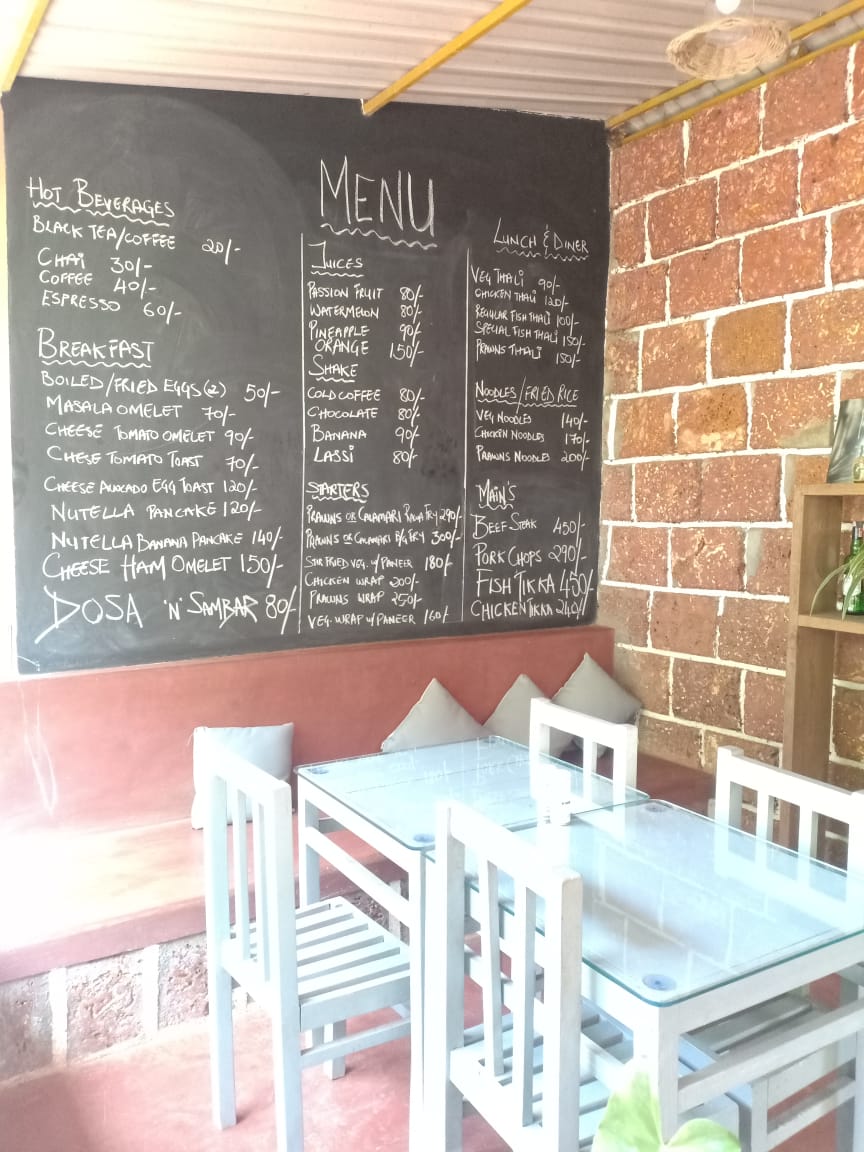 MENU
HOT BEVERAGES
BLACK TEA/COFFEE 20/-
CHAI 30/-
COFFEE 40/-
ESPRESSO 60/-
BREAKFAST
BOILED/FRIED EGGS(2) 50/-
MASALA OMELET 70/-
CHEESE TOMATO OMELET 90/-
CHESE TOMATO TOAST 70/-
CHEESE AVOCADO EGG TOAST 120/-
NUTELLA PANCAKE 120/-
NUTELLA BANANA PANCAKE 140/-
CHEESE HAM OMELET 150/-
DOSA 'N' SAMBAR 80/-
JUICES
PASSION FRUIT 80/-
WATERMELON 80/-
PINEAPPLE 90/-
ORANGE 150/-
SHAKE
COLD COFFEE 80/-
CHOCOLATE 80/-
BANANA 90/-
LASSI 80/-
STARTERS
PRAWNS OR CALAMARI RAWA FRY 290/-
PRAWNS OR CALAMARI B/G FRY 300/-
STIR FRIED VEG. W/ PANEER 180/-
CHICKEN WRAP 200/-
PRAWNS WRAP 250/-
VEG. WRAP W/ PANEER 160/-
LUNCH & DINER
VEG THALI 90/-
CHICKEN THALI 120/-
REGULAR FISH THALI 100/-
SPECIAL FISH THALI 150/-
PRAWNS THALI 150/-
NOODLES/FRIED RICE
VEG NOODLES 140/-
CHICKEN NOODLES 170/-
PRAWNS NOODLES 200/-
MAIN'S
BEEF STEAK 450/-
PORK CHOPS 290/-
FISH TIKKA 450/-
CHICKEN TIKKA 240/-